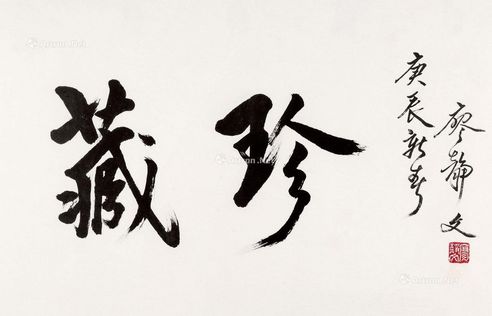 珍藏
庚辰新春
廖静文
Artron.Net